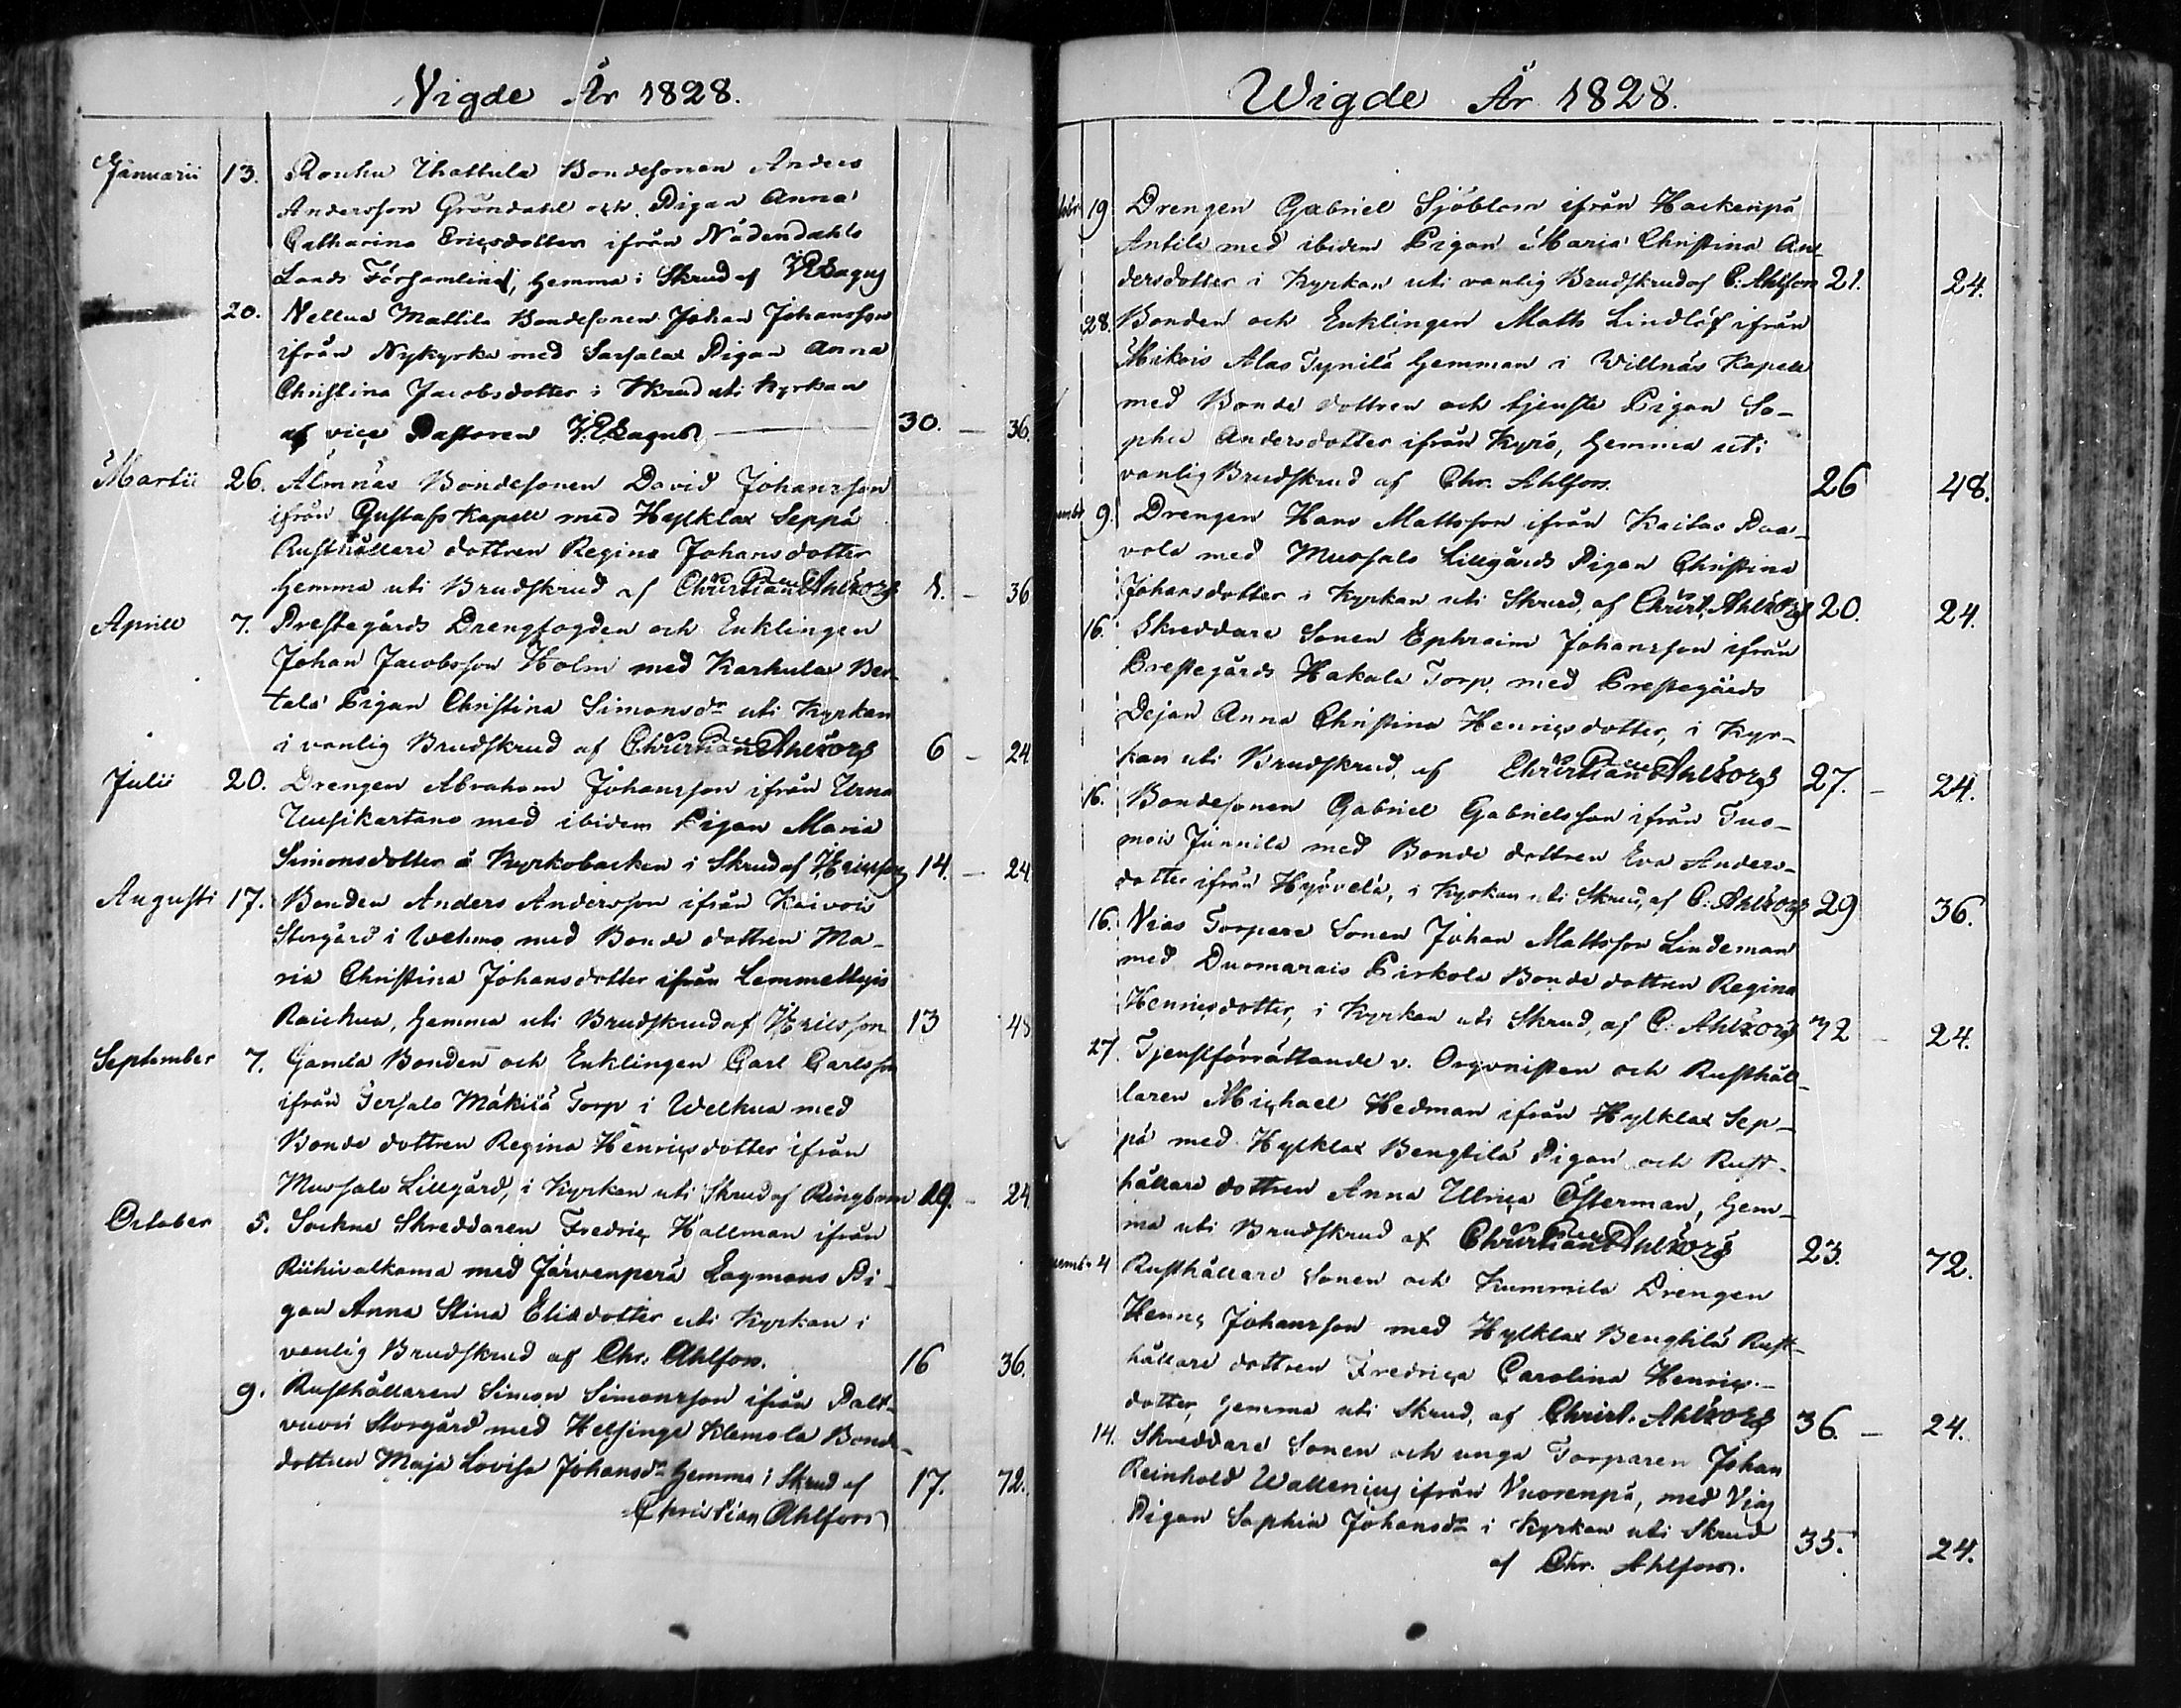 Vigde År 1828.
Januarii 13. Rouhu Ihattula Bondesonen Anders
Andersson Gröndahl och Pigan Anna
Catharina Ericsdotter ifrån Nådendahls
Lands Församling, hemma i Skrud af
20. Mattila Bondesonen Johan Johansson
ifrån Nykyrka med Sarsalax Pigan Anna
Christina Jacobsdotter i Skrud uti Kyrkan
af vice Pastoren 30. — 36.
Martii 26. Almnäs Bondesonen David Johansson
ifrån Gustafs Kapell med Hylklax Seppä
Rusthållare dottren Regina Johansdotter
hemma uti Brudskrud af Christian Ahlfors 8. — 36
Aprill 7. Prestegårds Drengfogden och Enklingen
Johan Jacobsson Holm med Karhula Ber-
tala Pigan Christina Simonsdr uti Kyrkan
i vanlig Brudskrud af Christian Ahlfors 6 — 24
Julii 20. Drengen Abraham Johansson ifrån
Uusikartano med ibidem Pigan Maria
Simonsdotter å Kyrkobacken i Skrud af 14. — 24.
Augusti 17. Bonden Anders Andersson ifrån Kaivois
Storgård i Wehmo med Bonde dottren Ma-
ria Christina Johansdotter ifrån Lemmettyis
hemma uti Brudskrud af Ericsson 13 48
September 7. Gamla Bonden och Enklingen Carl Carlsson
ifrån Tersalo Mäkilä Torp i Welkua med
Bonde dottren Regina Henricsdotter ifrån
Mussalo Lillgård, i Kyrkan uti Skrud af Ringbom 19. — 24
October 5. Sockne Skreddaren Fredric Hallman ifrån
Riihivalkama med Järvenperä Lagmans Pi-
gan Anna Stina Eliædotter uti Kyrkan i
vanlig Brudskrud af Chr. Ahlfors. 16 36.
9. Rusthållaren Simon Simonsson ifrån Palt-
vuori Storgård med Helsinge Klemola Bonde-
dottren Maja Lovisa Johansdr hemma i Skrud af 17. 72.
Christian Ahlfors
Wigde År 1828.
19 Drengen Gabriel Sjöblom ifrån Hackenpä
Antila med ibidem Pigan Maria Christina An-
dersdotter i Kyrkan uti vanlig Brudskrud af C: Ahlfors 21. 24.
28. Bonden och Enklingen Matts Lindlöf ifrån
Mikois Alas Tynilä hemman i Willnäs Kapell
med Bonde dottren och tjenste Pigan So-
phia Andersdotter ifrån Kyrö, hemma uti
vanlig Brudskrud af Chr. Ahlfors. 26 48.
9. Drengen Hans Mattsson ifrån Kaitas Paa-
vola med Mussalo Lillgårds Pigan Christina
Johansdotter i Kyrkan uti Skrud, af Christ. Ahlfors 20. 24.
16. Skreddare Sonen Ephraim Johansson ifrån
Prestegårds Hakala Torp, med Prestegårds
Dejan Anna Christina Henricsdotter, i Kyr-
kan uti Brudskrud af Christian Ahlfors 27. — 24.
16. Bondesonen Gabriel Gabrielsson ifrån Tuo-
mois Junnila med Bonde dottren Eva Anders-
dotter ifrån Hyövelä, i Kyrkan uti Skrud, af C: Ahlfors 29 36.
16. Nias Torpare Sonen Johan Mattsson Lindeman
med Duomarais Pirkola Bonde dottren Regina
Henricsdotter, i Kyrkan uti Skrud, af C: Ahlfors 72 — 24.
27. Tjenstförrättande v. Organisten och Rusthål-
laren Michael Hedman ifrån Hylklax Sep-
pä med Hylklax Bengtilä Pigan och Rust-
hållare dottren Anna Ulrica Österman, hem-
ma uti Brudskrud af Christian Ahlfors 23. 72.
4 Rusthållare Sonen och Kummila Drengen
Henric Johansson med Hylklax Bengtilä Rust-
hållare dottren Fredrica Carolina Henrics-
dotter, hemma uti Skrud, af Christ. Ahlfors 36. — 24.
14. Skreddare Sonen och unga Torparen Johan
Reinhold Wallenius ifrån Vuorenpä, med Nias
Pigan Sophia Johansdr i Kyrkan uti Skrud 35. 24.
af Chr. Ahlfors.